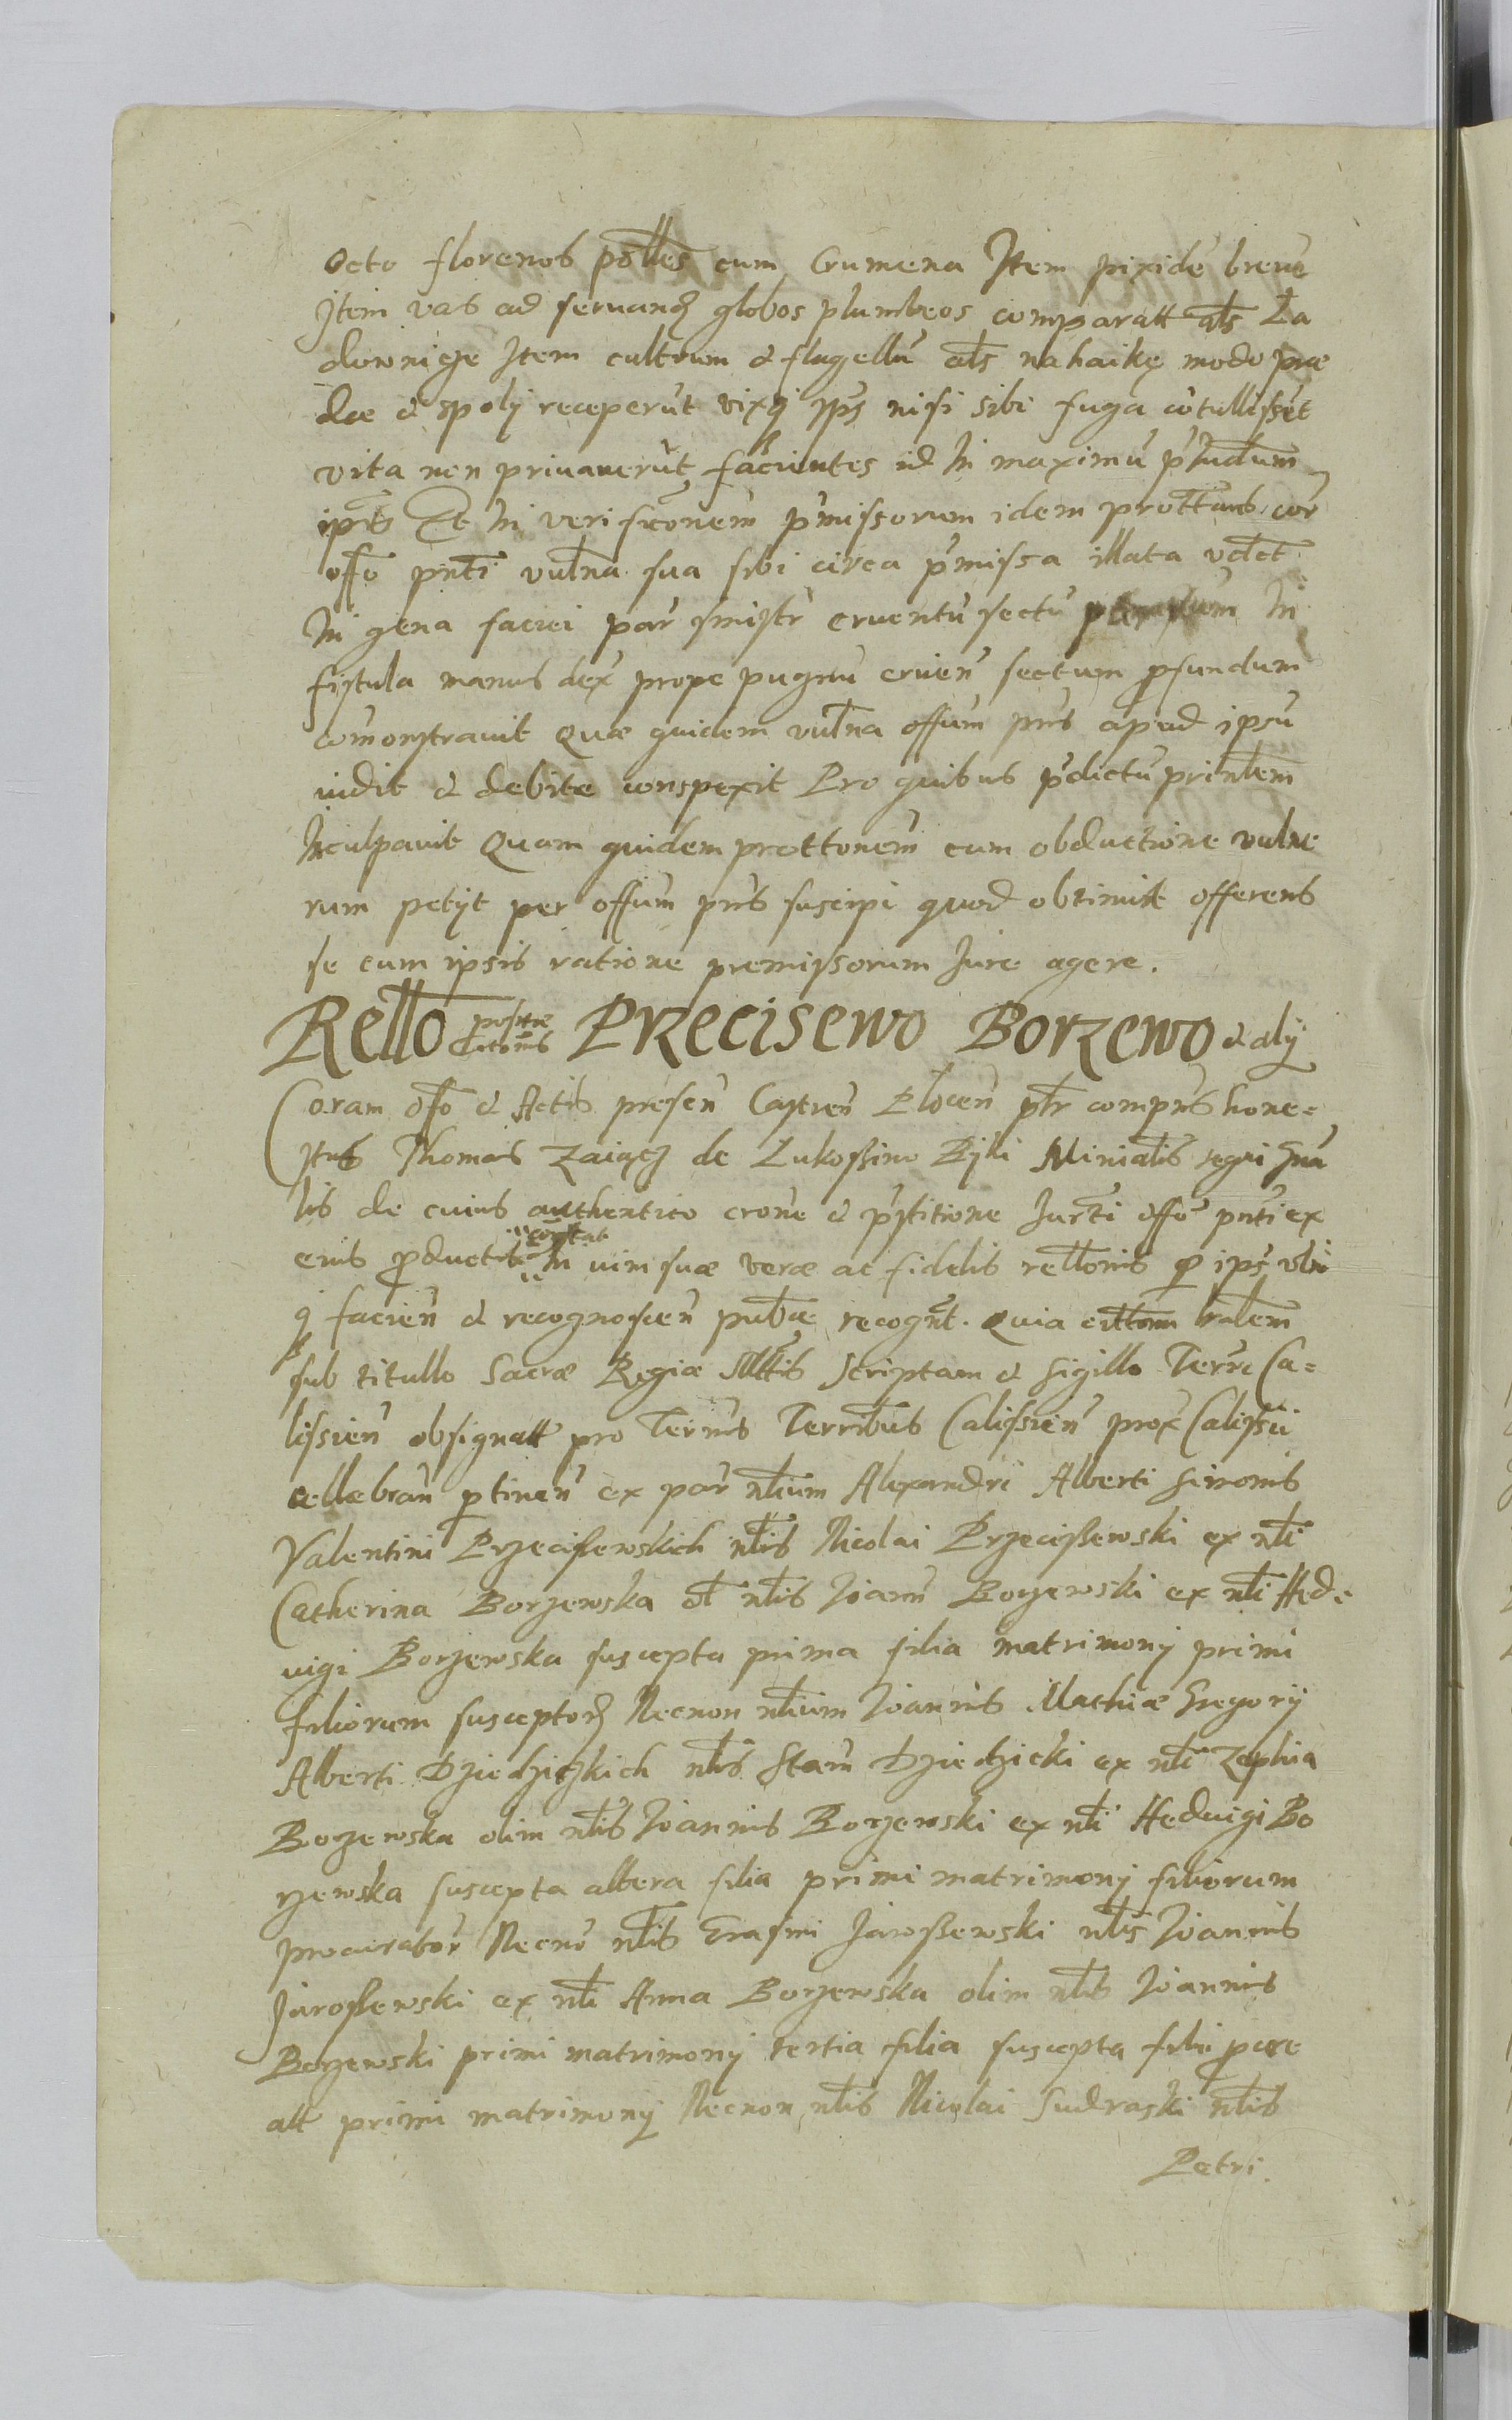 Octo florenos pōlles cum Crumena Item pixidē breuē
Item vas ad seruand globos plumbeos comparatt als Ła
downicze Item cultrum & flagellū als nahaikę modo præ
dæ & spolij receperūt vixq ips nisi sibi fuga cōtullissēt
vita non priuauerūt facientes id in maximū p̄iudium
ipsis Et in verificōnem p̄missorum idem prottans cor
offo pnti vulna sua sibi circa p̄missa illata vdlct
In gena faciei par sinistr cruentū sectū In
fistula manus dex prope pugnū cruen sectum profundum
comonstrauit Quæ quidem vulna offum pns apud ipsū
vidit & debite conspexit Pro quibus p̄dictū prinlem
Inculpauit Quam quidem prottonem cum obductione vulne
rum petijt per offum pns suscipi quod obtinuit offerens
se cum ipsis ratione premissorum Iure agere.
Rello positæ Cittonis Przecisewo Borzewo & alÿ
Coram offo & Actis presen Castren Plocen ptr compns hone-
stus Thomas Zaiącz de Lukossino Pijki Minialis regni Gna
lis de cuius authentico crone & p̄stitione Iurti offo pnti ex
eius productis constat In vim suæ veræ ac fidelis rellonis p ips vbi
q facien & recognoscen publce recognt. Quia cittonm tralem
sub titullo Sacræ Regiæ Mttis scriptam & sigillo Terræ Ca-
lissien obsignatt pro Ternis Terribus Calissien prox Calissii
cellebran ptinen ex par nlium Alexandri Alberti Simonis
Valentini Przecissewskich nlis Nicolai Przecissewski ex nli
Catherina Borzewska ol nlis Ioann Borzewski ex nli Hed-
uigi Borzewska suscepta prima filia matrimonij primi
filiorum susceptor Necnon nlium Ioannis Mathiæ Gregorij
Alberti Dziedziczkich nlis Stan Dziedzicki ex nli Zophia
Borzewska olim nlis Ioannis Borzewski ex nli Heduigi Bo
rzewska suscepta altera filia primi matrimonij filiorum
procreator Necnō nlis Erasmi Jarossewski nlis Ioannis
Jarossewski ex nli Anna Borzewska olim nlis Ioannis
Borzewski primi matrimonij tertia filia suscepta filii procre
att primi matrimonij Necnon nlis Nicolai Sudraski nlis
Petri.